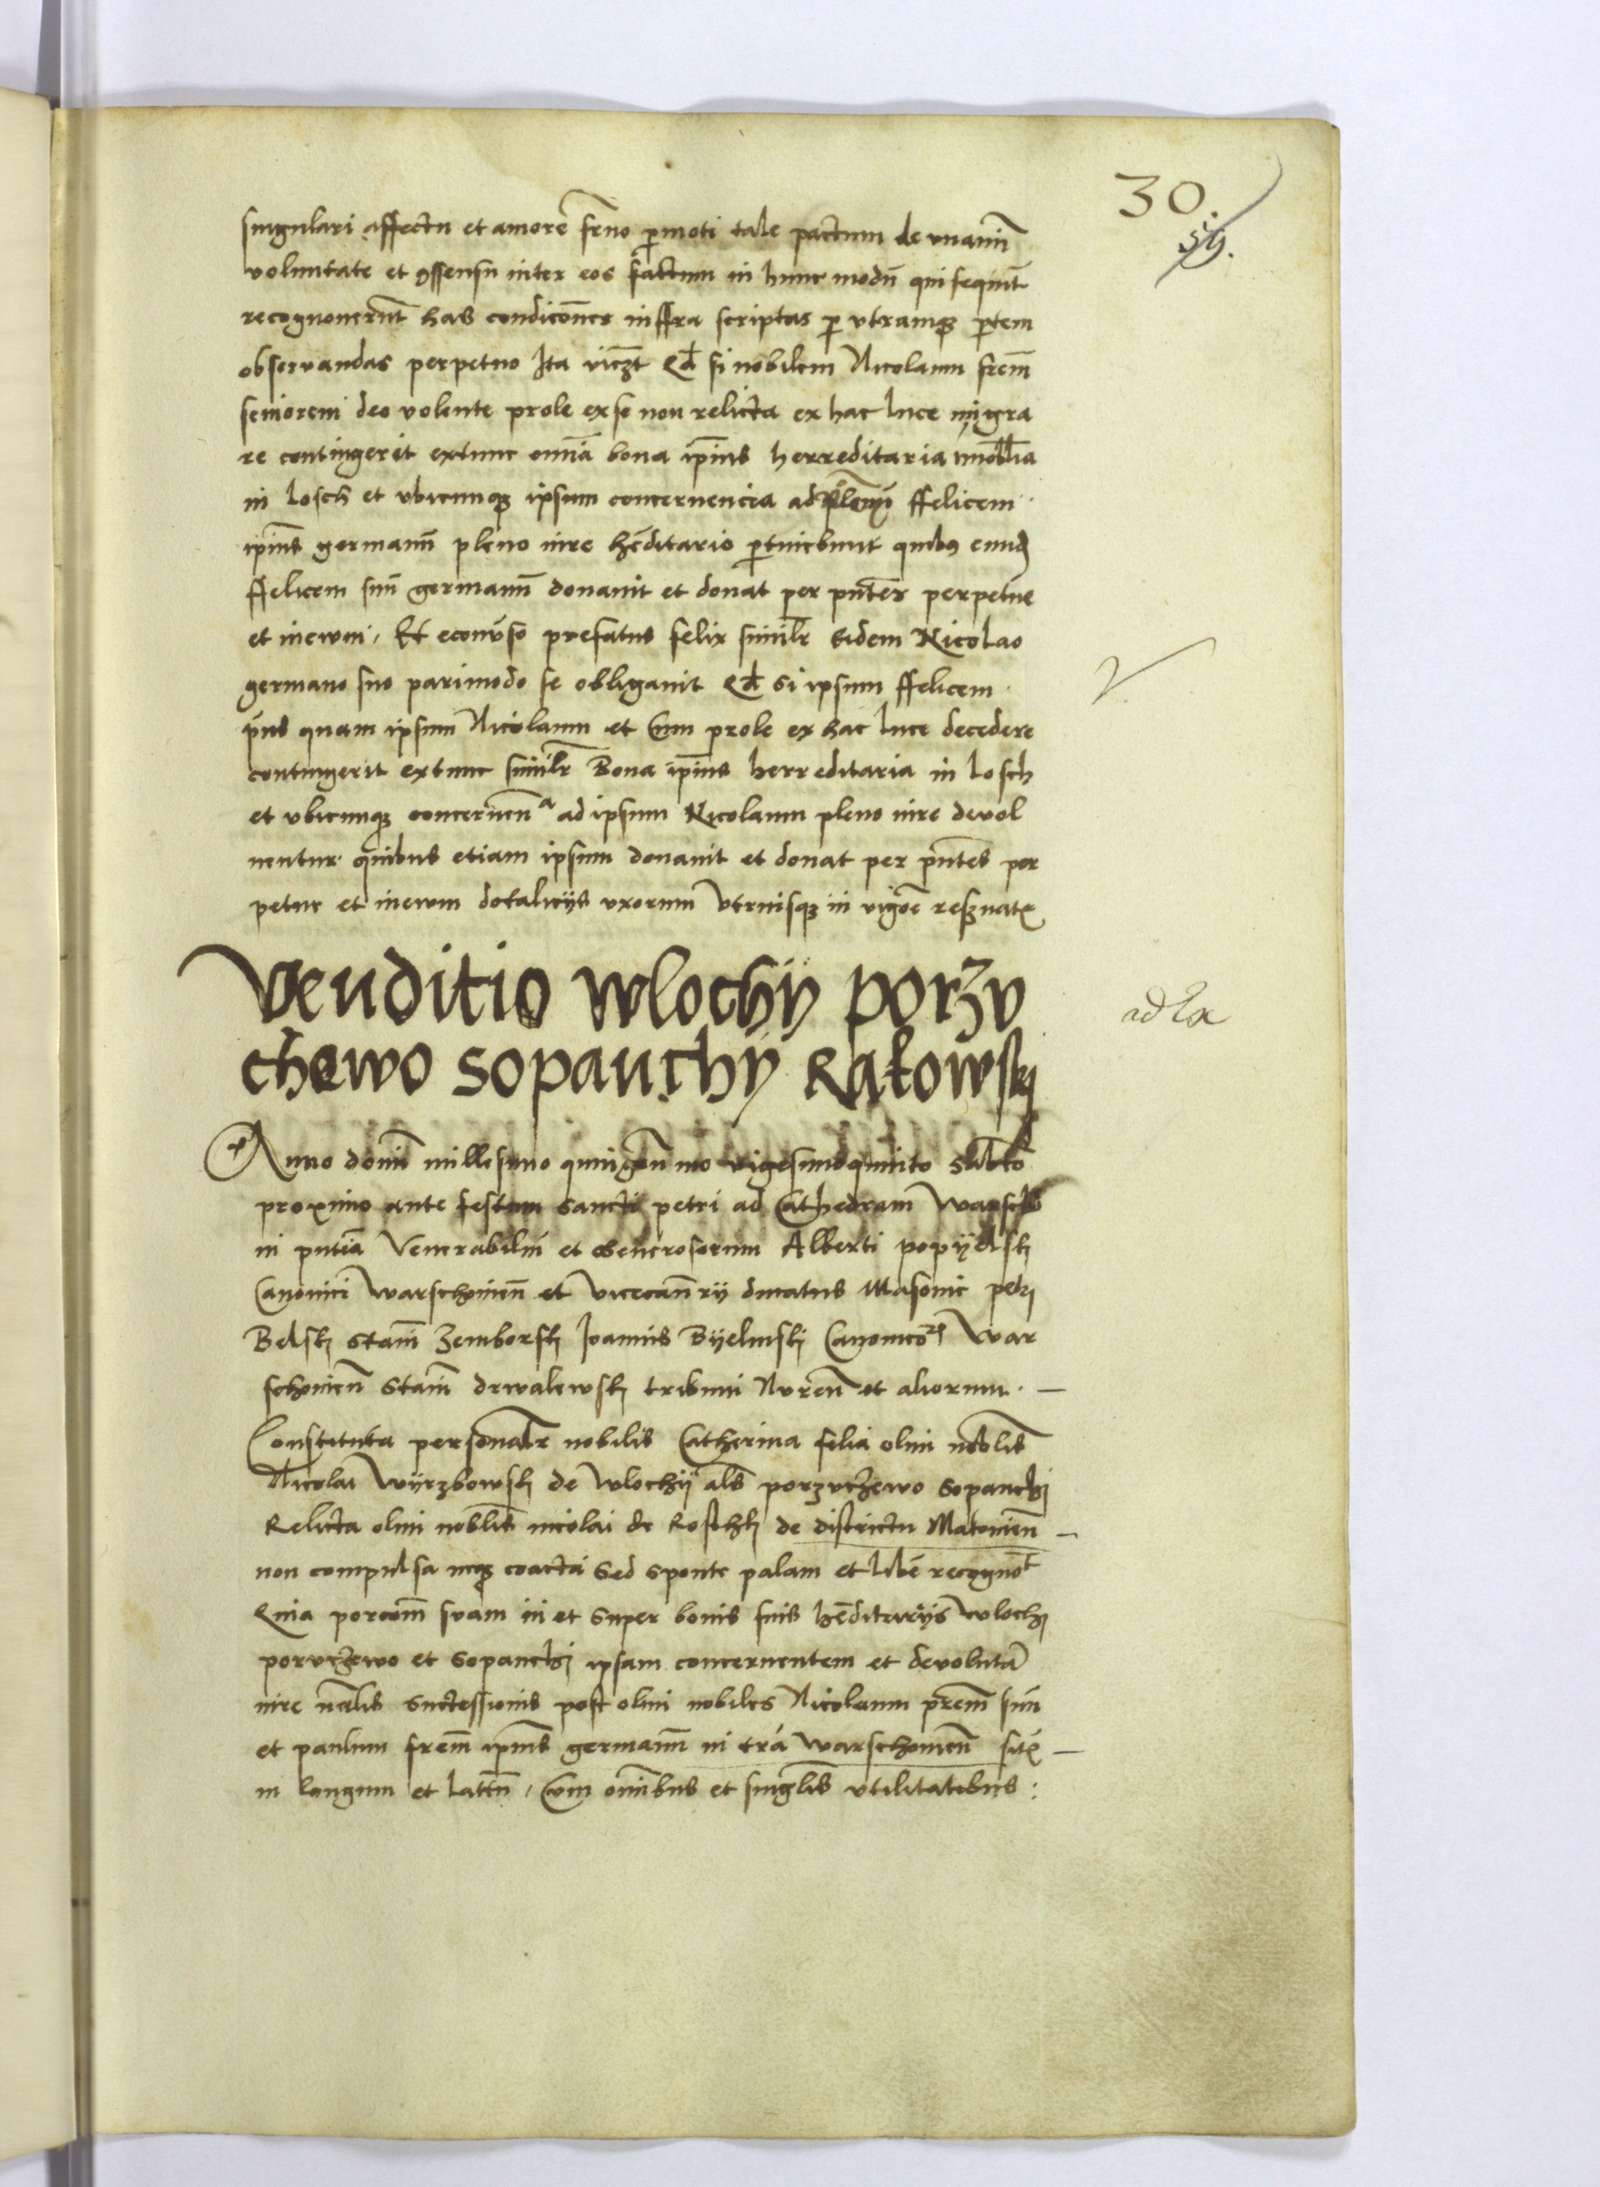 30.
59.
singulari affectu et amore frno permoti tale pactum de unanimi
voluntate et assensu inter eos factum in hunc modum qui sequitur
recognoverunt has condiciones inffra scriptas per utramque partem
observandas perpetuo Ita viczt Qd si nobilem Nicolaum frem
seniorem deo volente prole ex se non relicta ex hac luce migra
re contingerit extunc omnia bona ipius herreditaria imobilia
in Losch et ubicunque ipsum concernencia ad ffelicem
ipius germanum pleno iure hereditario pertinebunt quibus eundem
ffelicem suum germanum donavit et donat per pntes perpetue
et inewm. Et econverso prefatus felix similr eidem Nicolao
germano suo parimodo se obligavit Qd si ipsum ffelicem
prius quam ipsum Nicolaum et cum prole ex hac luce decedere
contingerit extunc similr Bona ipius herreditaria in Losch
et ubicunque concernena ad ipsum Nicolaum pleno iure devol
ventur quibus etiam ipsum donavit et donat per pntes per
petue et inewm dotalicys uxorum utriusque in vigore reservatis
Venditio wlochy porzu
chewo sopanchy Ratowskj
ad Ex
Anno domini millesimo quingenmo vigesimoquinto Sabbto
proximo ante festum sancti petri ad Cathedram Warsch
in pntia Venerabilium et Generosorum Alberti popyelskj
Canonici Warschovien et vicecanrij ducatus Masovie petri
Belskj Stani Zemborskj Joannis Byelinskj Canonicorum War
schovien Stani drwalewskj tribuni Nuren et aliorum
Constituta personalr nobilis Catherina filia olim nobilis
Nicolai Wyrzbowskj de Wlochy als porzuchewo sopanchj
Relicta olim nobilis nicolai de Roschkj de districtu Makovien
non compulsa neque coacta sed sponte palam et libere recognot
Quia porcom suam in et super bonis suis hereditarijs wlochj
poruchewo et sopanchj ipsam concernentem et devolutam
iure nralis successionis post olim nobiles Nicolaum prem suum
et paulum frem ipius germanum in tra warschovien sitis
in longum et latum, cum omnibus et singulis utilitatibus